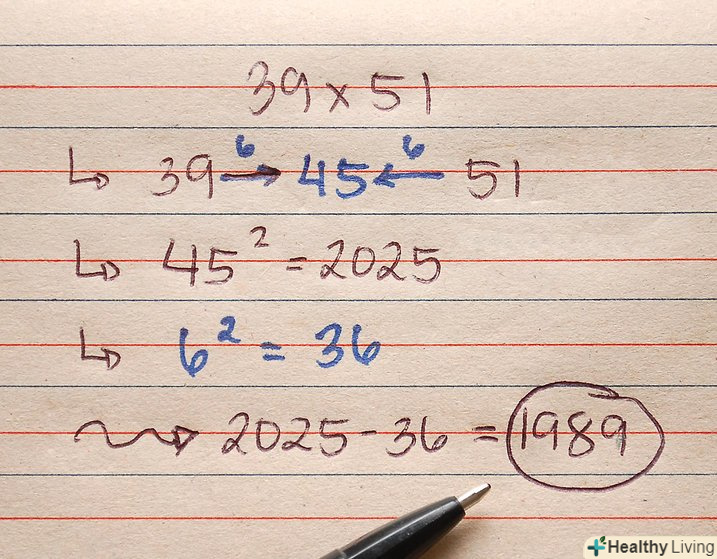 39 x 51
↳ 39 →6 45 ←6 51
↳ 45² = 2025
↳ 6² = 36
⇝ 2025 - 36 = 1989
Healthy Living